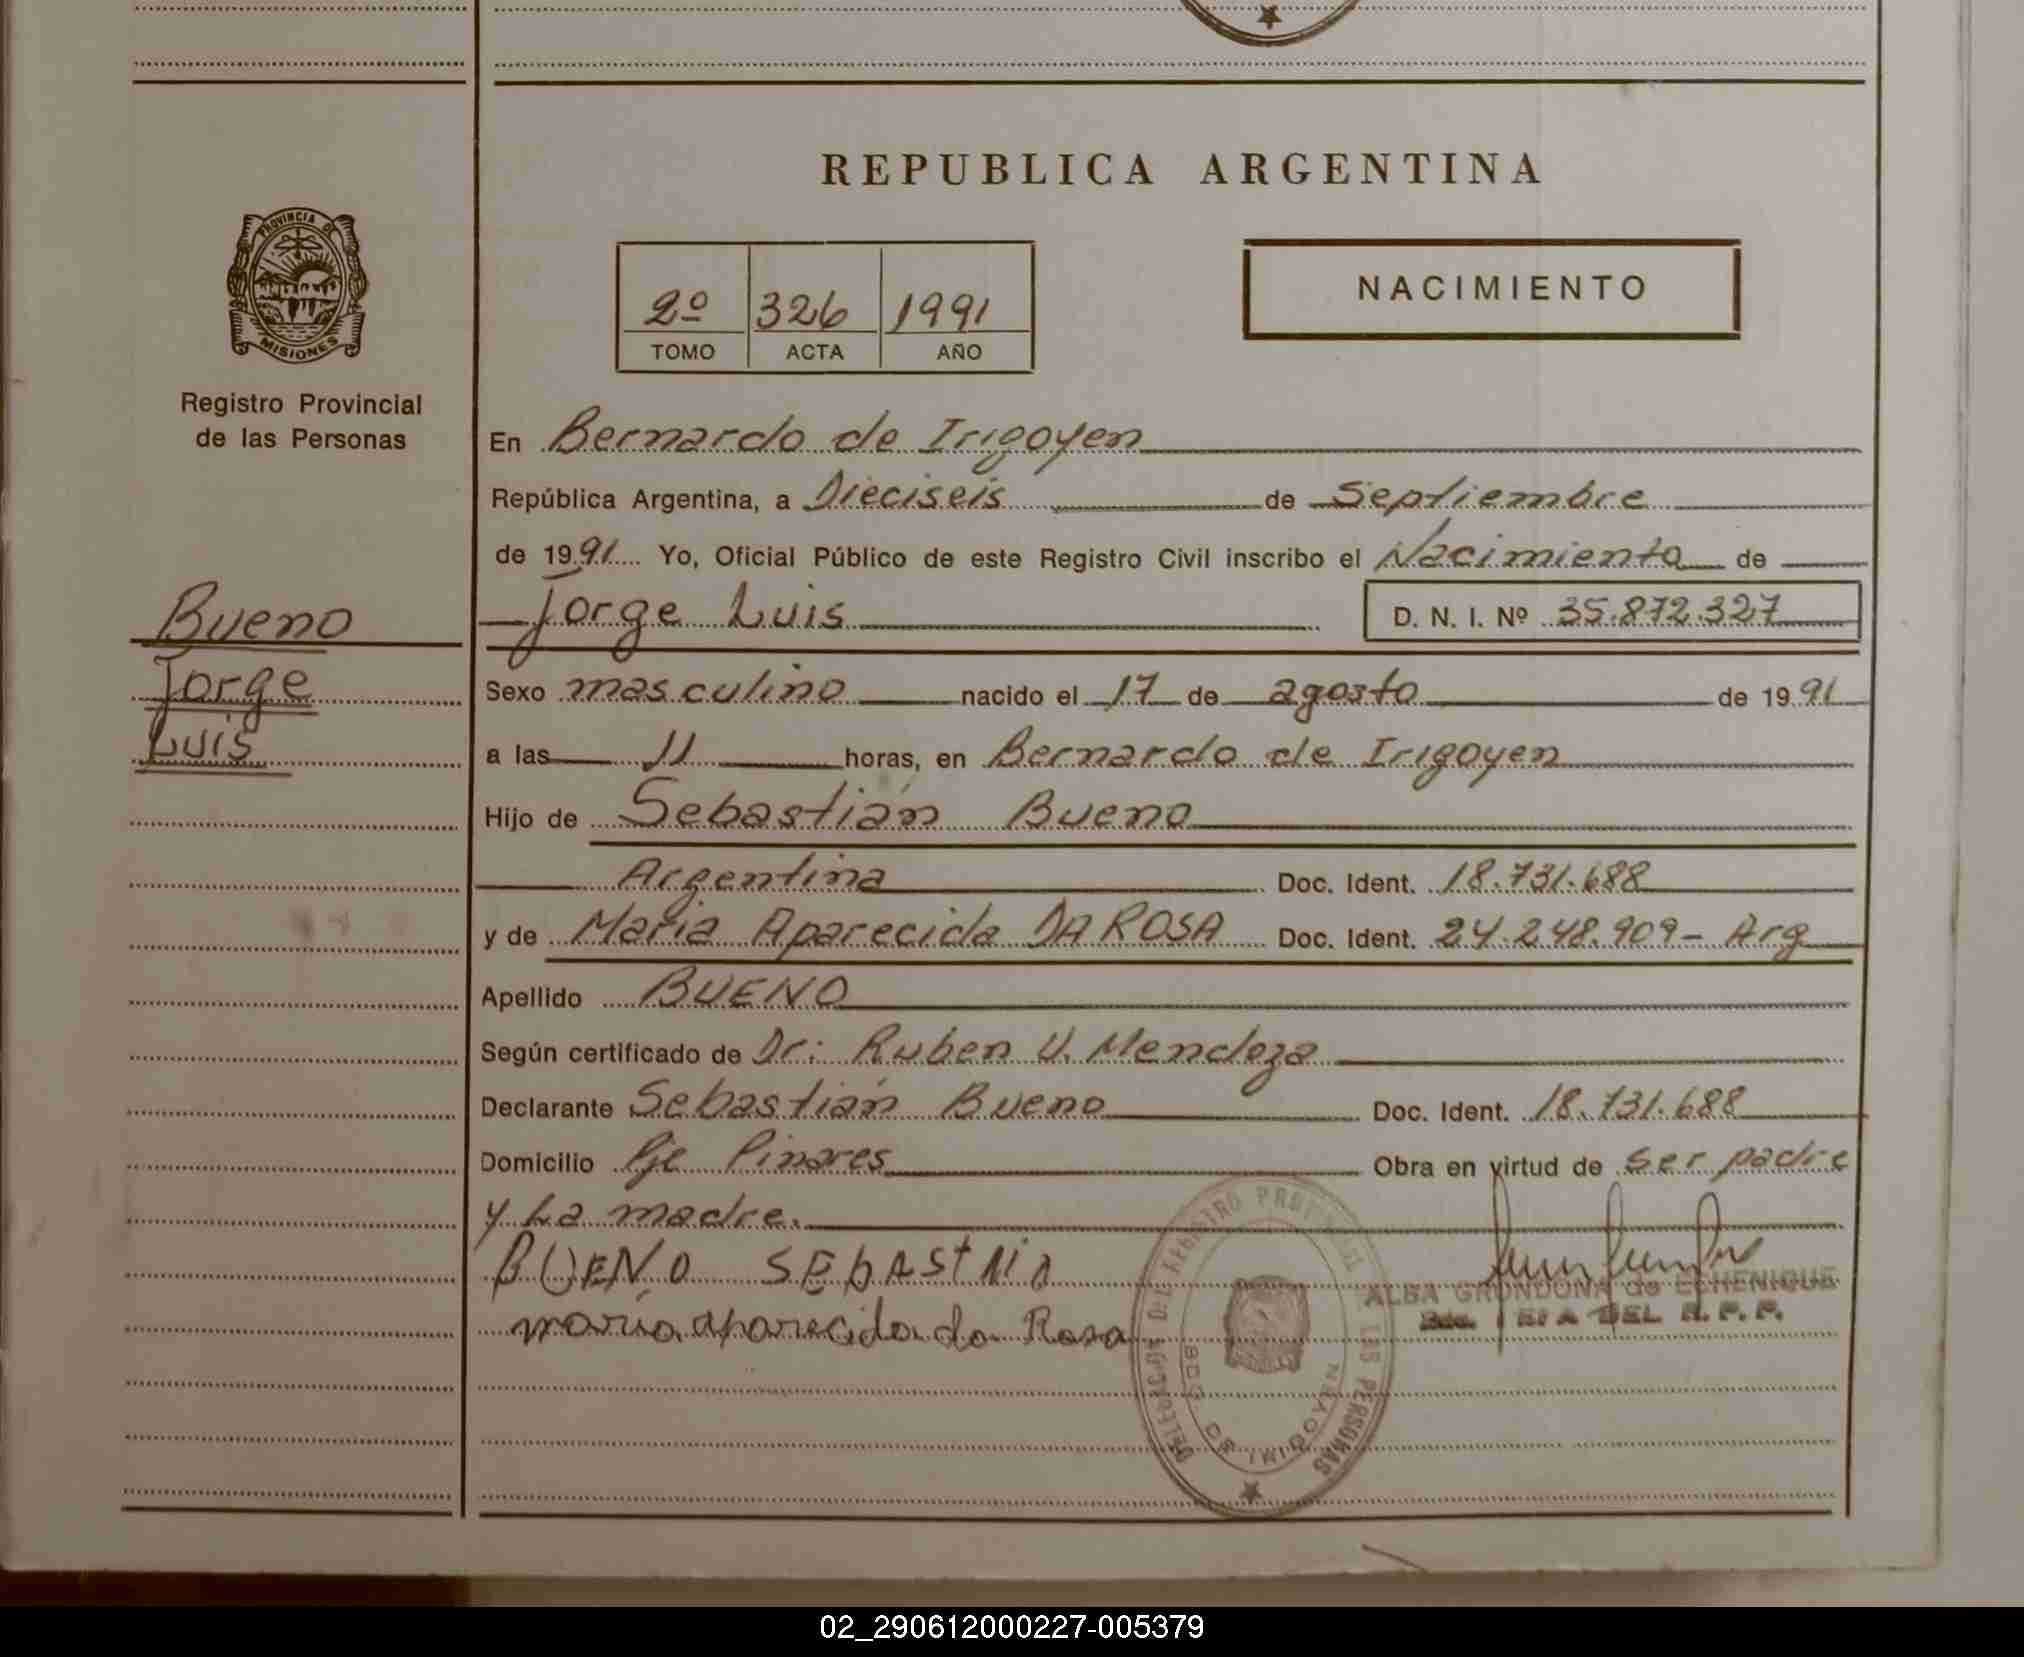 REPUBLICA ARGENTINA
PROVINCIA DE
MISIONES
Registro Provincial
de las Personas
2º 326 1991
TOMO ACTA AÑO
NACIMIENTO
Bueno
Jorge
Luis
En Bernardo de Irigoyen
República Argentina, a Dieciseis de Septiembre
de 1991 Yo, Oficial Público de este Registro Civil inscribo el Nacimiento de
Jorge Luis D. N. I. Nº 35.872.327
Sexo masculino nacido el 17 de agosto de 1991
a las 11 horas, en Bernardo de Irigoyen
Hijo de Sebastián Bueno
Argentina Doc. Ident. 18.731.688
y de Maria Aparecida DA ROSA Doc. Ident. 24.248.909- Arg
Apellido BUENO
Según certificado de Dr: Ruben V. Mendoza
Declarante Sebastián Bueno Doc. Ident. 18.731.688
Domicilio Pje Pinares Obra en virtud de ser padre
y La madre.
BUENO
maria aparecida da Rosa
ALBA GRONDONA de ECHENIQUE
DEL R. P. P.
DELEGACION DEL REGISTRO PROVINCIAL DE LAS PERSONAS
BDO. DE IRIGOYEN
02_290612000227-005379